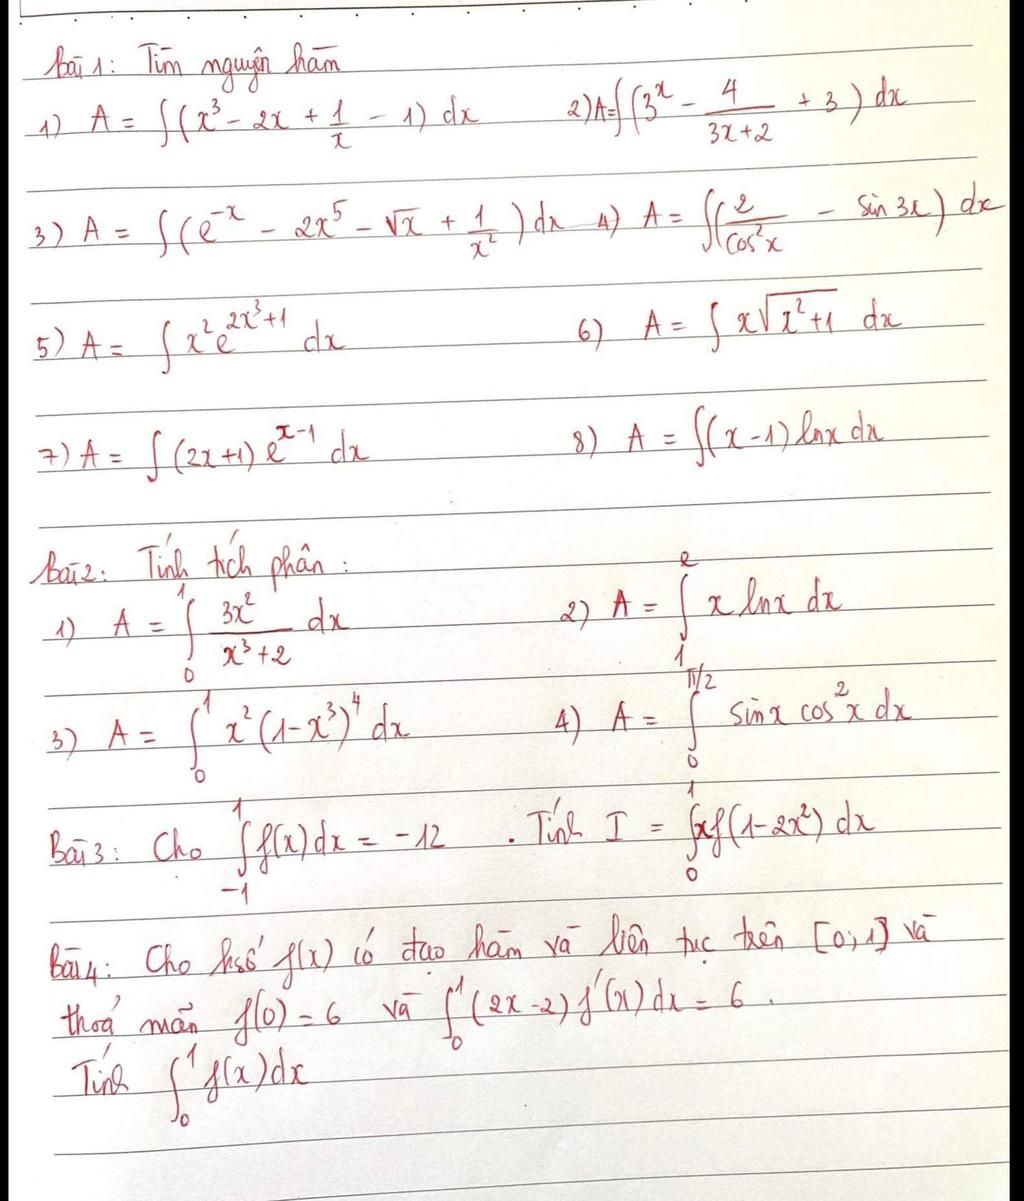 Bài 1: Tìm nguyên hàm
1) A = ∫(x³ - 2x + 1/x - 1) dx 2) A = ∫(3ˣ - 4/(3x+2) + 3) dx
3) A = ∫(e⁻ˣ - 2x⁵ - √x + 1/x²) dx 4) A = ∫(2/cos²x - sin 3x) dx
5) A = ∫ x² e^(2x³+1) dx 6) A = ∫ x√(x²+1) dx
7) A = ∫ (2x+1) e^(x-1) dx 8) A = ∫(x-1) lnx dx
Bài 2: Tính tích phân:
1) A = ∫₀¹ 3x²/(x³+2) dx 2) A = ∫₁ᵉ x lnx dx
3) A = ∫₀¹ x²(1-x³)⁴ dx 4) A = ∫₀^(π/2) sinx cos²x dx
Bài 3: Cho ∫₋₁¹ f(x) dx = -12 . Tính I = ∫₀¹ xf(1-2x²) dx
Bài 4: Cho hsố f(x) có đạo hàm và liên tục trên [0;1] và
thoả mãn f(0) = 6 và ∫₀¹ (2x-2) f'(x) dx = 6.
Tính ∫₀¹ f(x) dx